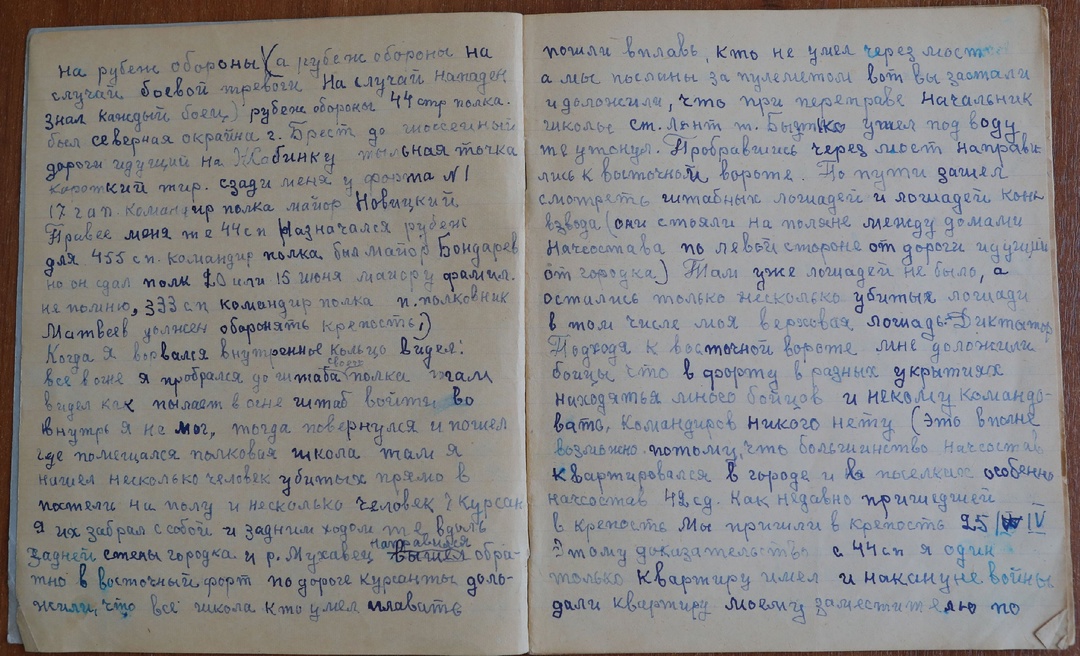 на рубеж обороны (а рубеж обороны на
случай боевой тревоги На случай нападен
знал каждый боец) рубеж обороны 44 стр полка.
был северная окрайна г. Брест до шоссейный
дороги идущий на Кобинку тыльная точка
короткий жир. сзади меня у форта N 1
17 гап. командир полка майор Новицкий
Правее меня же 44 сп назначался рубеж
для 455 сп. командир полка был майор Бондарев
но он сдал полк 10 или 15 июня майору фамил.
не помню, 333 сп командир полка п. полковник
Матвеев должен оборонять крепость,)
Когда я ворвался внутренное кольцо видел:
все в огне я пробрался до штаба своего полка там
видел как пылает в огне штаб войти во
внутрь я не мог, тогда повернулся и пошел
где помещался полковая школа там я
нашел несколько человек убитых прямо в
постели на полу и несколько человек 7 курсан
я их забрал с собой и задним ходом т е вдоль
задней стены городка и р. Мухавец направился обра-
тно в восточный форт по дороге курсанты доло-
жили, что все школа кто умел плавать
пошли вплавь, кто не умел через мост
а мы посланы за пулеметом вот вы застали
и доложили, что при переправе начальник
школы ст. л-нт т. Бытко ушел под воду
т е утонул. Пробравшись через мост направи
лись к восточной вороте. По пути зашел
смотреть штабных лошадей и лошадей конн
взвода (они стояли на поляне между домами
Начсостава по левой стороне от дороги идущий
от городка) Там уже лошадей не было, а
остались только несколько убитых лошади
в том числе моя верховая лошадь-Диктатор
Подходя к восточной вороте мне доложили
бойцы что в форту в разных укрытиях
находятья много бойцов и некому командо-
вать, командиров никого нету (Это вполне
возможно потому, что большинство начсостав
квартировался в городе и в поселках особенно
начсостав 42 сд. Как недавно пришедшей
в крепость Мы пришли в крепость 25/IV
Этому доказательство с 44 сп я один
только квартиру имел и накануне войны
дали квартиру моему заместителю по